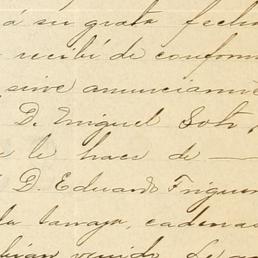 á su grata fecha
recibí de conform
sirve anunciarme
D. Miguel Soto,
le hace de —
D. Eduardo Trigue
la barraja, cadena
bían venido